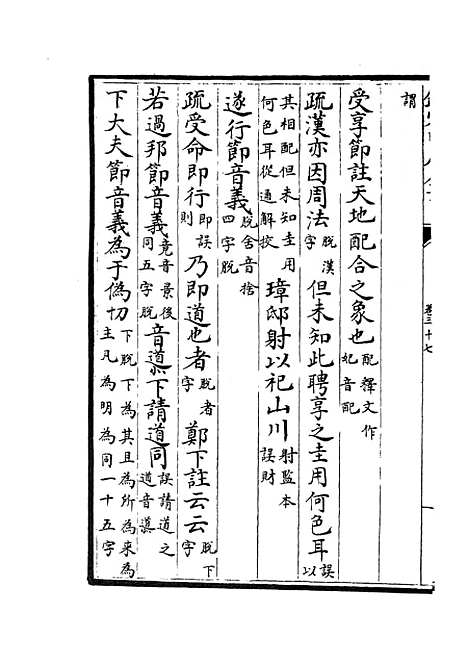 謂
受享節註天地配合之象也配釋文作妃音配
疏漢亦因周法脫漢字但未知此聘享之圭用何色耳誤以
其相配但未知圭用何色耳從通解挍璋邸射以祀山川射監本誤財
遂行節音義脫舍音捨四字脫
疏受命即行即誤則乃即道也者脫者字鄭下註云云脫下字
若過邦節音義竟音景後同五字脫音導下請道同誤請道之道音導
下大夫節音義為于偽切下脫下為其且為所為來為主凡為明為同一十五字
卷三十七